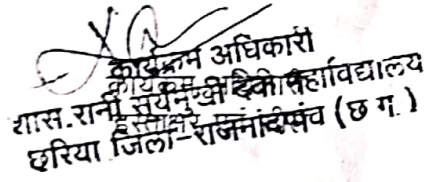 कार्यक्रम अधिकारी
शास. रानी सूर्यमुखी देवी महाविद्यालय
छुरिया जिला-राजनांदगांव (छ ग.)